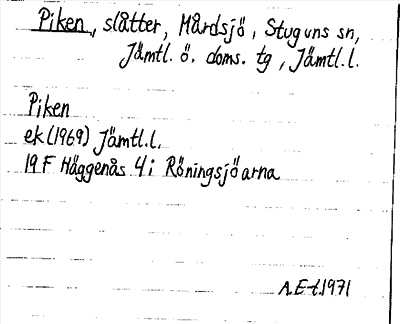 Piken, slåtter, Mårdsjö, Stuguns sn,
Jämtl. ö. doms. tg, Jämtl.l.
Piken
ek (1969) Jämtl.l.
19 F Häggenås 4 i Röningsjöarna
A.E-t.1971